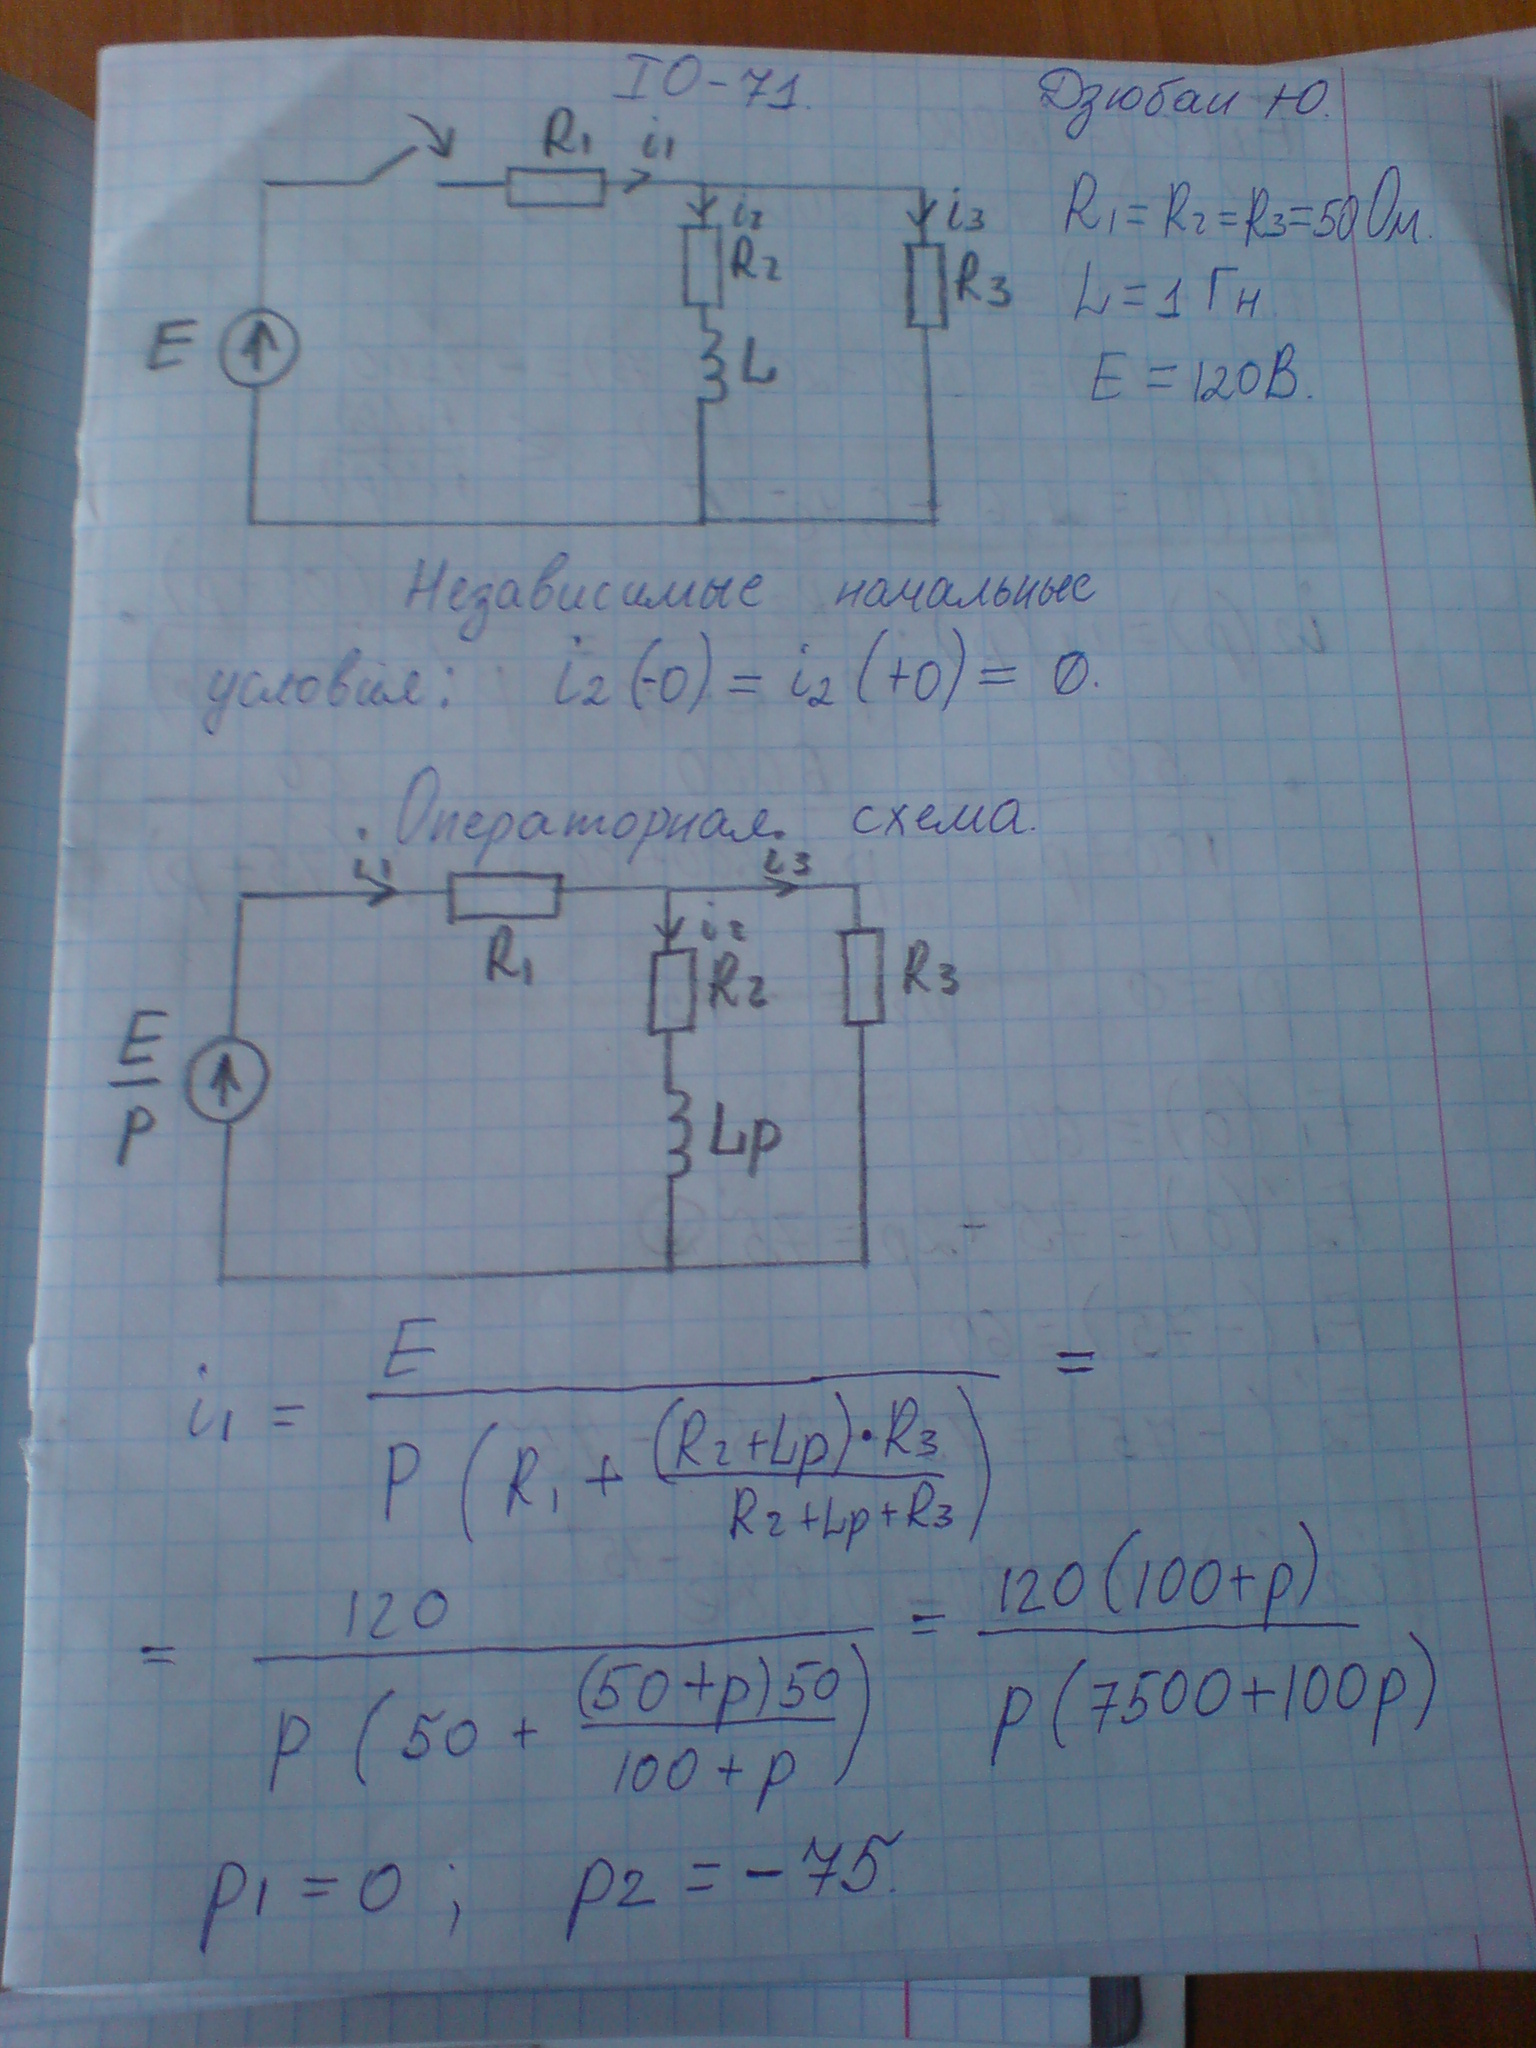 IO-71. Дзюбан Ю.
R1 i1
i2 i3 R1 = R2 = R3 = 50 Ом.
R2 R3
L = 1 Гн
E L
E = 120 В.
Независимые начальные
условия: i2(-0) = i2(+0) = 0.
Операторная схема.
i1 i3
i2
R1 R2 R3
E/p
Lp
i1 = E / (p (R1 + (R2+Lp)·R3 / (R2+Lp+R3))) =
= 120 / (p (50 + (50+p)50 / (100+p))) = 120(100+p) / (p(7500+100p))
p1 = 0 ; p2 = -75.